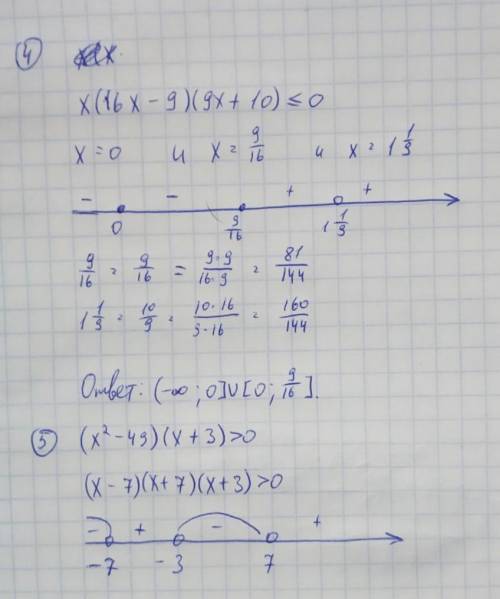 ④
x(16x - 9)(9x + 10) ≤ 0
x = 0 и x = 9/16 и x = 1 1/9
- - + +
0 9/16 1 1/9
9/16 = 9/16 = 9·9/16·9 = 81/144
1 1/9 = 10/9 = 10·16/9·16 = 160/144
Ответ: (-∞ ; 0]∪[0 ; 9/16].
⑤ (x² - 49)(x + 3) > 0
(x - 7)(x + 7)(x + 3) > 0
- + - +
-7 -3 7